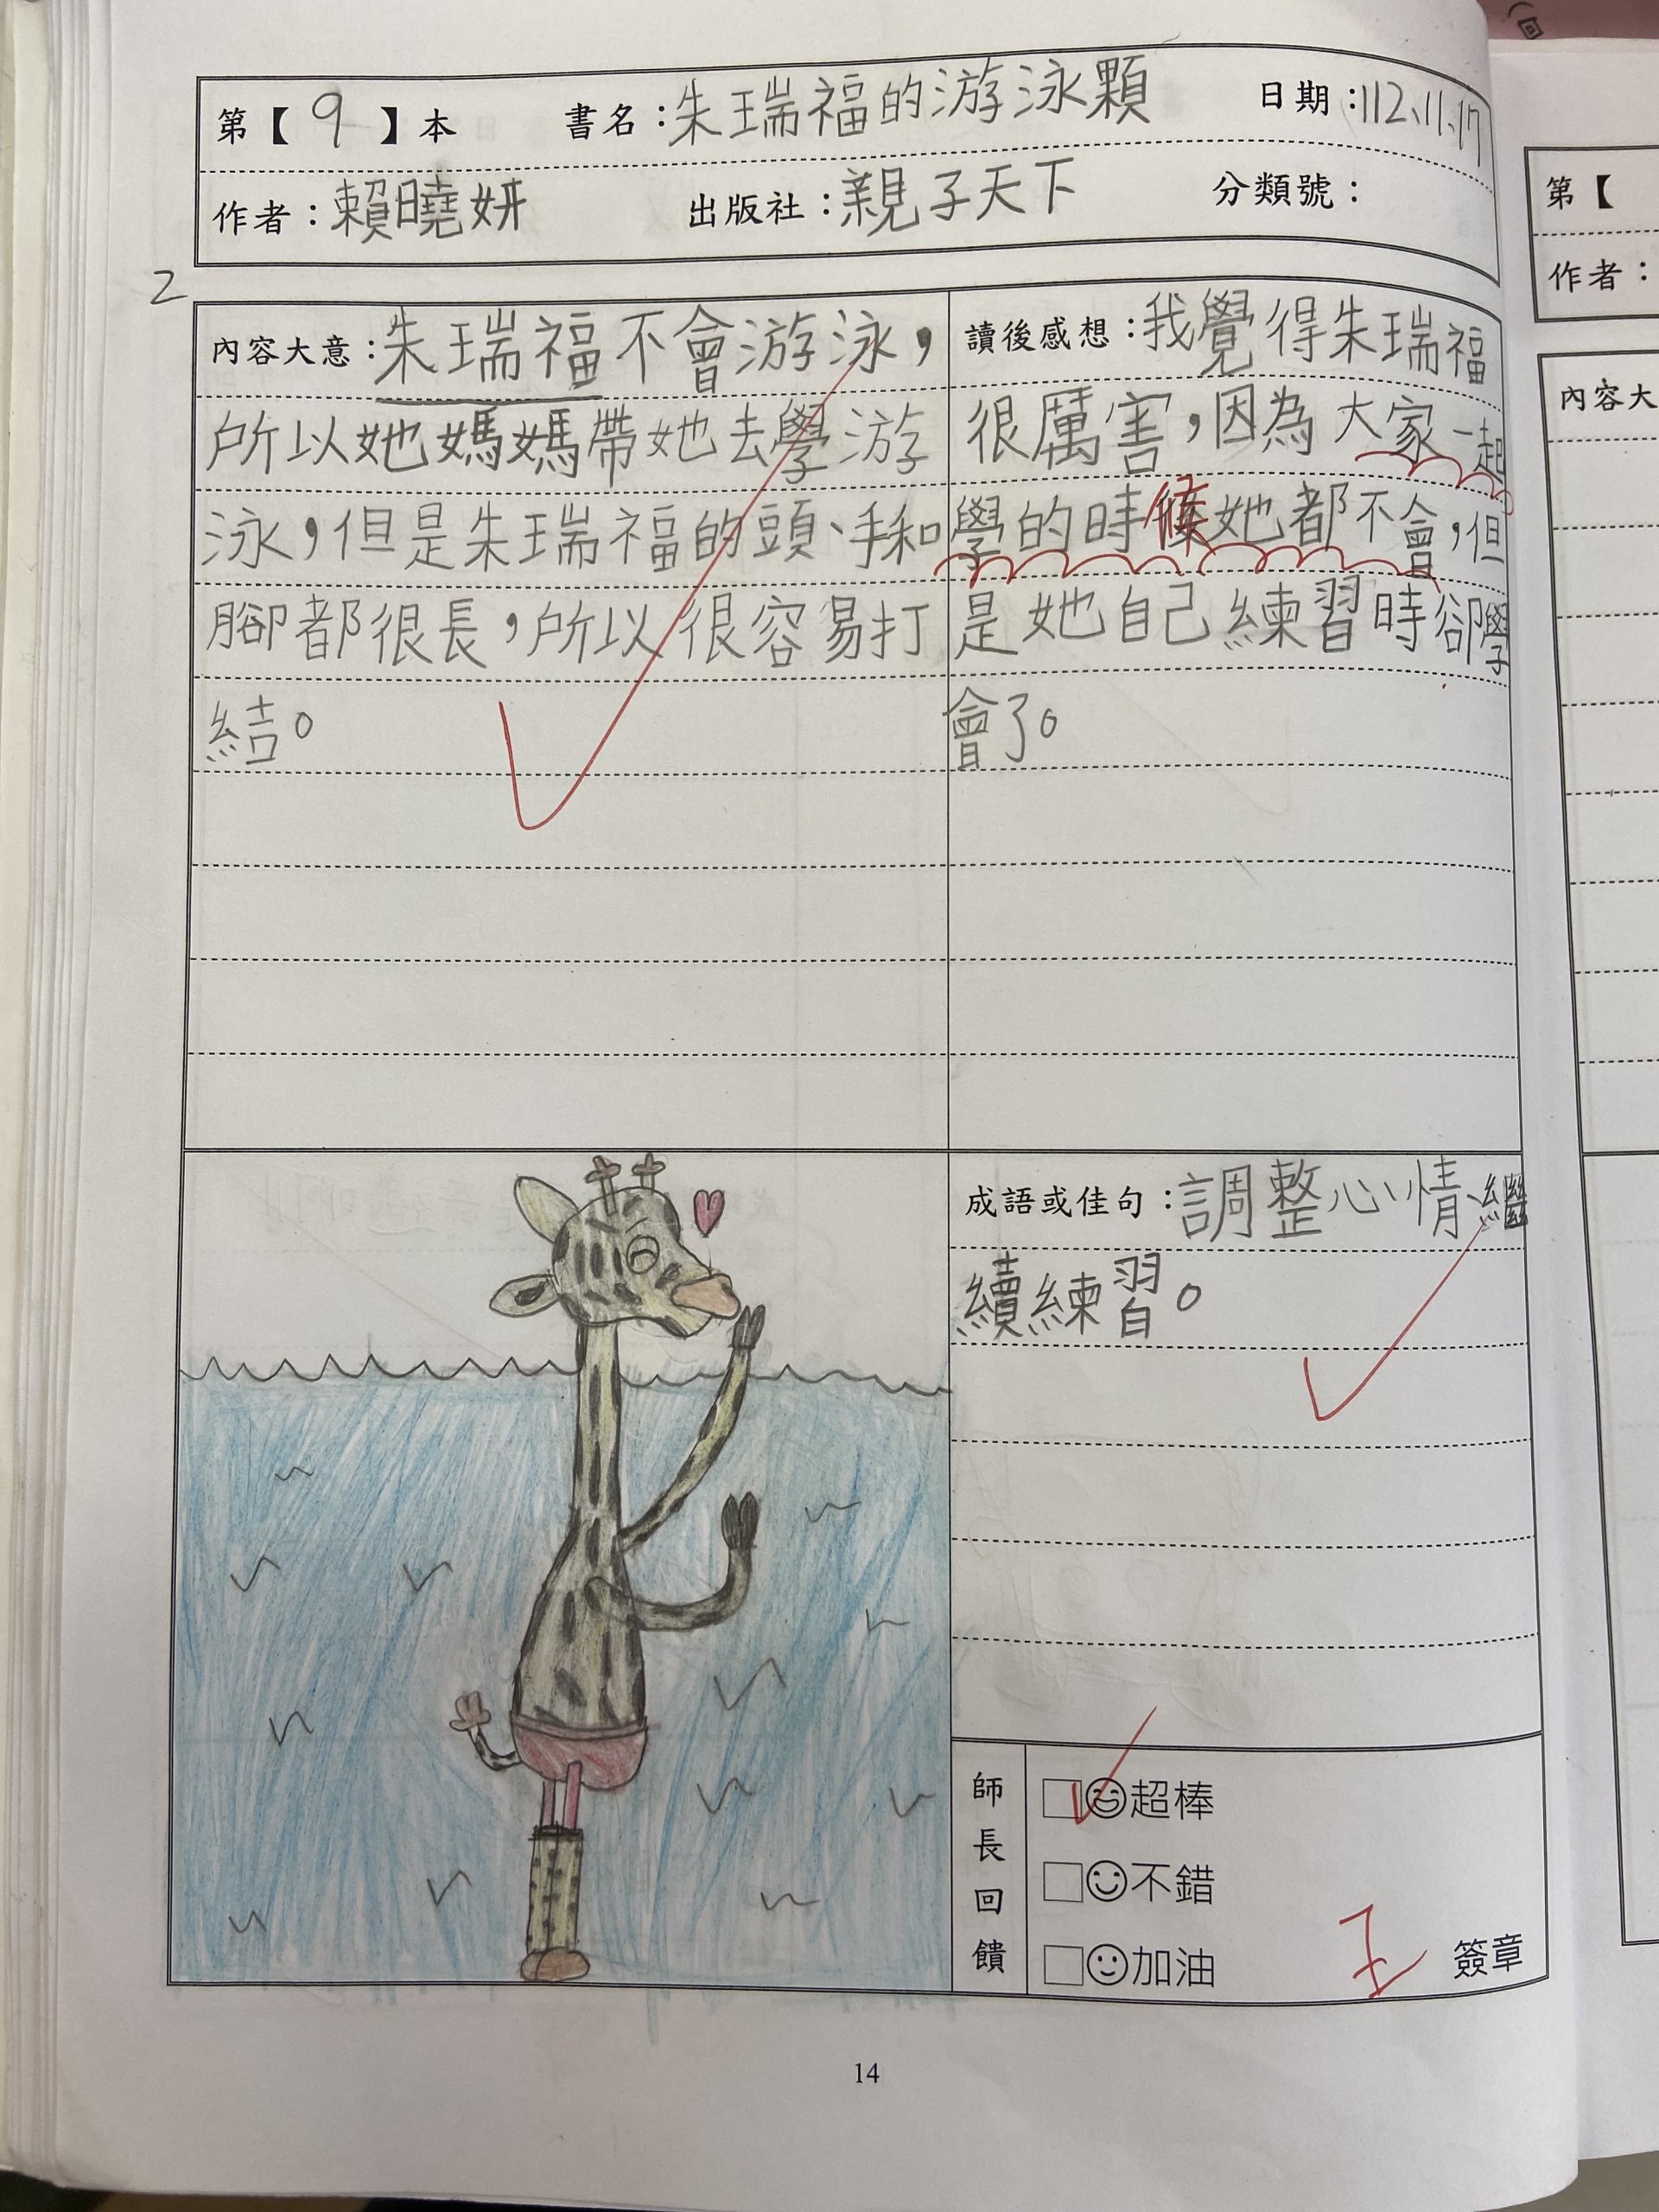 第【9】本 書名：朱瑞福的游泳顆 日期：112.11.17
作者：賴曉妍 出版社：親子天下 分類號：
2
內容大意：朱瑞福不會游泳，
所以她媽媽帶她去學游
泳，但是朱瑞福的頭、手和
腳都很長，所以很容易打
結。
讀後感想：我覺得朱瑞福
很厲害，因為大家一起
學的時候她都不會，但
是她自己練習時卻學
會了。
成語或佳句：調整心情繼
續練習。
師長回饋
□超棒
□不錯
□加油
王 簽章
14
第【
作者：
內容大